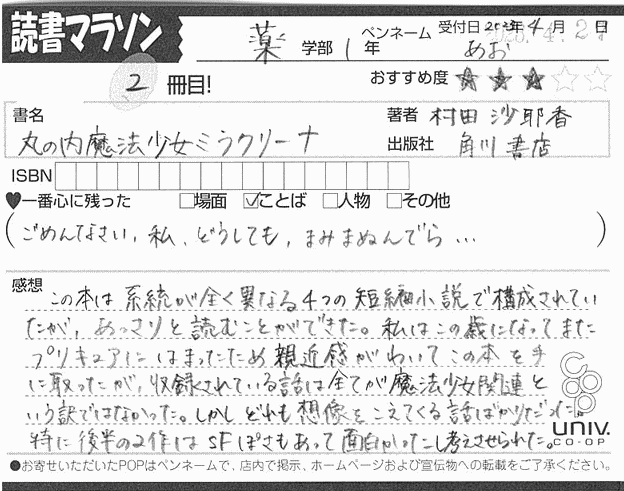 読書マラソン
受付日 2023年 4月 日
薬 学部 1年 ペンネーム あお
2 冊目! おすすめ度 ★★★☆☆
書名 著者 村田 沙耶香
丸の内魔法少女ミラクリーナ 出版社 角川書店
ISBN
♥一番心に残った □場面 ☑ことば □人物 □その他
(ごめんなさい、私、どうしても、まみまぬんでら…)
感想 この本は系統が全く異なる4つの短編小説で構成されてい
たが、あっさりと読むことができた。私はこの歳になってまた
プリキュアにはまったため親近感がわいてこの本を手
に取ったが、収録されている話は全てが魔法少女関連と
いう訳ではなかった。しかしどれも想像をこえてくる話ばかりだった。
特に後半の2作はSFぽさもあって面白かったし考えさせられた。
coop
UNIV.
CO-OP
●お寄せいただいたPOPはペンネームで、店内で掲示、ホームページおよび宣伝物への転載をご了承ください。